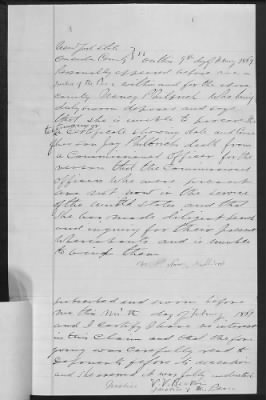 New York State
Oneida County } SS on this 9th day of May 1867
Personally appeared before me a
Justice of the Peace within and for the above
County Nancy Philbrick who being
duly sworn deposes and says
that she is unable to procure
a Certificate showing date and cause
of her son Jay Philbrick death from
a Commissioned Officer for the
reason that the Commissioned
officers who were present
are not now in the service
of the United States and that
She has made diligent search
and inquiry for their present
whereabouts and is unable
to find them
subscribed and sworn before
me this Ninth day of May 1867
and I certify I have no interest
in this Claim and that the fore
going was carefully read to
Deponent before
and the same was fully understood
Justice of the Peace